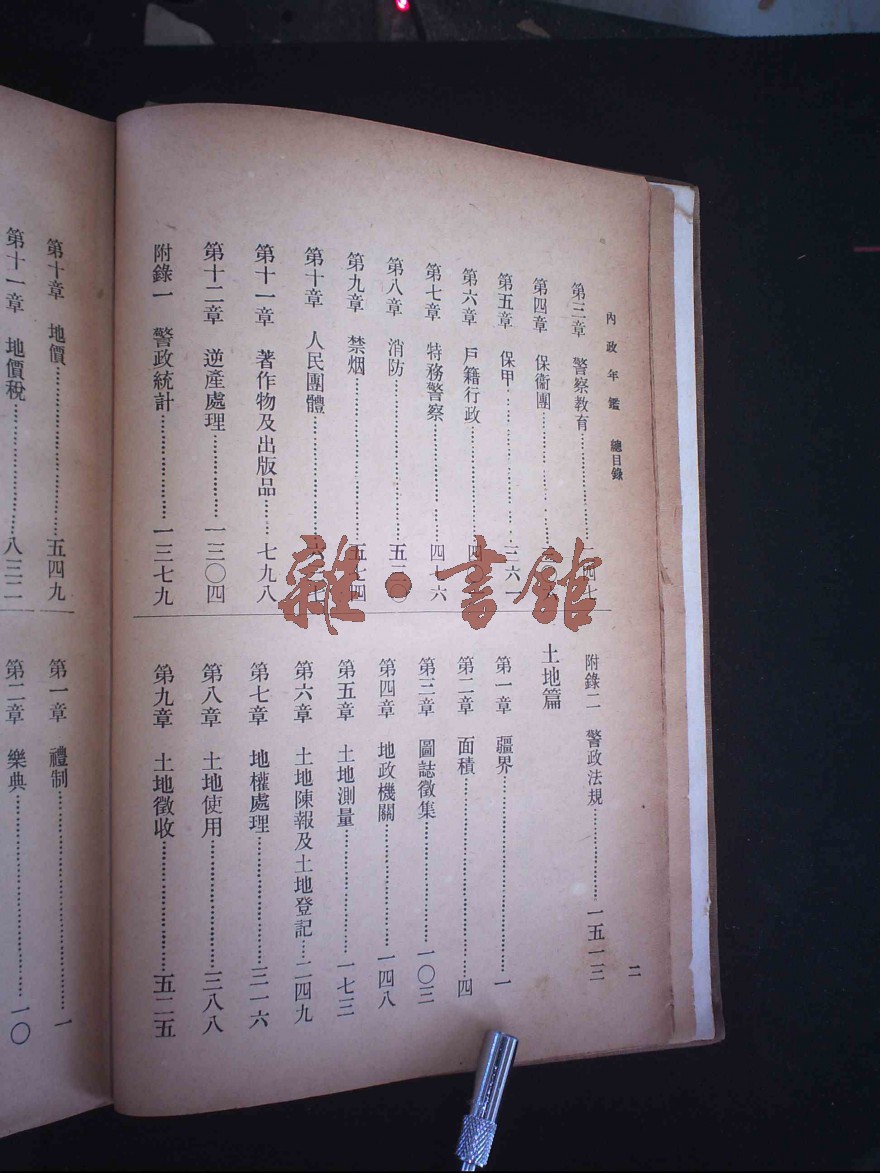 內政年鑑 總目錄
二
第三章 警察教育……四七
第四章 保衛團……
第五章 保甲……三六一
第六章 戶籍行政……四
第七章 特務警察……四七六
第八章 消防……五〇
第九章 禁烟……五七四
第十章 人民團體……七
第十一章 著作物及出版品……七九八
第十二章 逆產處理……一三〇四
附錄一 警政統計……一三七九
附錄二 警政法規……一五一三
土地篇
第一章 疆界……一
第二章 面積……四
第三章 圖誌徵集……一〇三
第四章 地政機關……一四八
第五章 土地測量……一七三
第六章 土地陳報及土地登記……二四九
第七章 地權處理……三一六
第八章 土地使用……三八八
第九章 土地徵收……五二五
第十章 地價……五四九
第十一章 地價稅……八三二
第一章 禮制……一
第二章 樂典……一〇
雜·書館